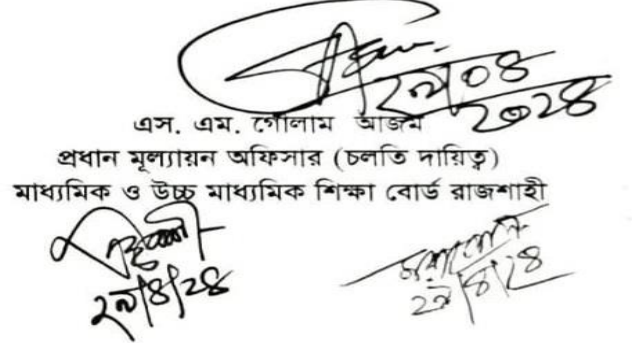 ২৯/০৪
২০২৪
এস. এম. গোলাম আজম
প্রধান মূল্যায়ন অফিসার (চলতি দায়িত্ব)
মাধ্যমিক ও উচ্চ মাধ্যমিক শিক্ষা বোর্ড রাজশাহী
২৯/৪/২৪
২৯/৪/২৪